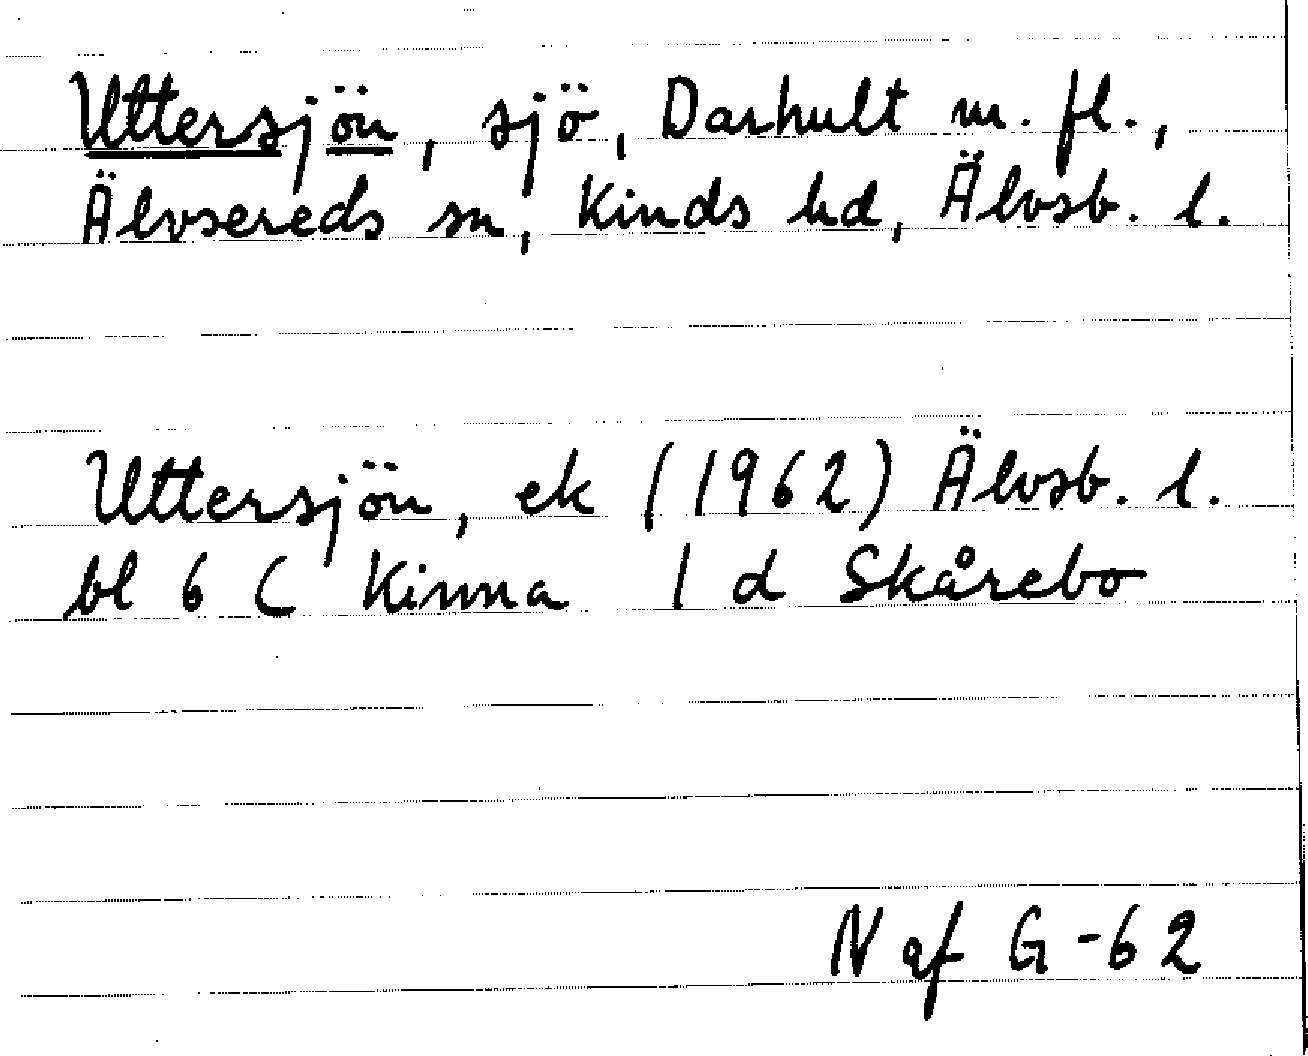 Uttersjön, sjö, Darhult m. fl.,
Älvsereds sn, Kinds hd, Älvsb. l.
Uttersjön, ek (1962) Älvsb. l.
bl 6 C Kinna 1 d Skårebo
N af G -62